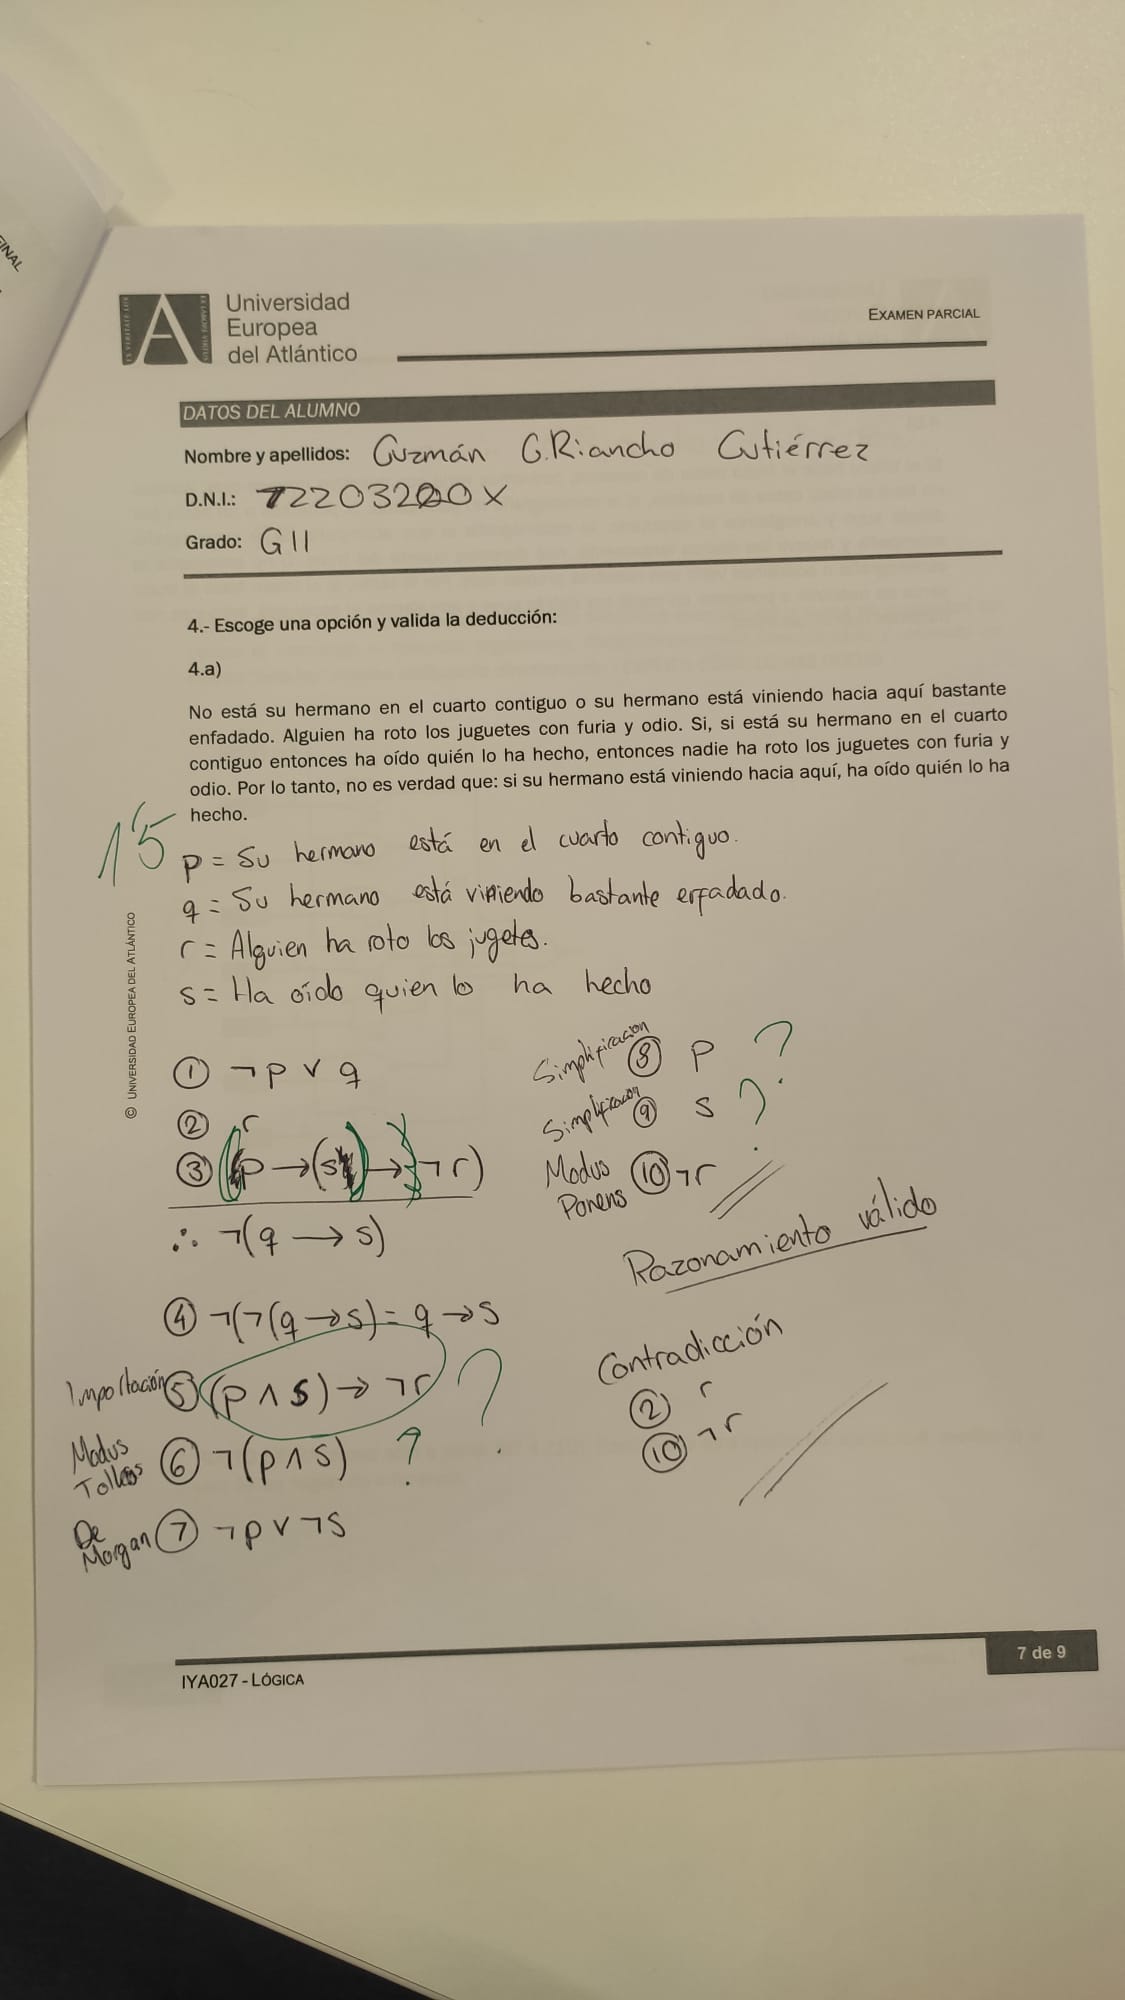 FINAL
Universidad
Europea
del Atlántico
EXAMEN PARCIAL
DATOS DEL ALUMNO
Nombre y apellidos: Guzmán G.Riancho Gutiérrez
D.N.I.: 72203200X
Grado: GII
4.- Escoge una opción y valida la deducción:
4.a)
No está su hermano en el cuarto contiguo o su hermano está viniendo hacia aquí bastante
enfadado. Alguien ha roto los juguetes con furia y odio. Si, si está su hermano en el cuarto
contiguo entonces ha oído quién lo ha hecho, entonces nadie ha roto los juguetes con furia y
odio. Por lo tanto, no es verdad que: si su hermano está viniendo hacia aquí, ha oído quién lo ha
hecho.
1'5
p = Su hermano está en el cuarto contiguo.
q = Su hermano está viniendo bastante enfadado.
r = Alguien ha roto los jugetes.
s = Ha oído quien lo ha hecho
© UNIVERSIDAD EUROPEA DEL ATLÁNTICO
① ¬p ∨ q
② r
③ (p → (s) → ¬r)
∴ ¬(q → s)
④ ¬(¬(q → s) = q → s
Importación ⑤ (p ∧ s) → ¬r ?
Modus Tollens ⑥ ¬(p ∧ s) ?
De Morgan ⑦ ¬p ∨ ¬s
Simplificación ⑧ p ?
Simplificación ⑨ s ?
Modus Ponens ⑩ ¬r
Razonamiento válido
Contradicción
② r
⑩ ¬r
IYA027 - LÓGICA
7 de 9